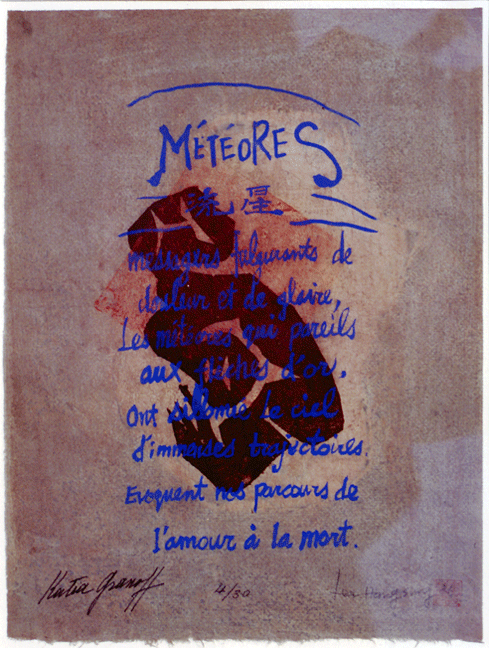 MÉTÉORES
流星
messagers fulgurants de
douleur et de gloire,
Les météores qui pareils
aux flèches d'or,
Ont sillonné le ciel
d'immenses trajectoires.
Evoquent nos parcours de
l'amour à la mort.
Katia Granoff
4/30